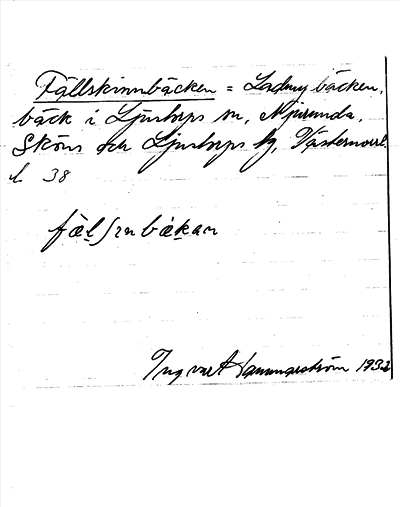 Fällskinnbäcken = Ladmybäcken,
bäck i Ljustorps sn, Njurunda,
Sköns och Ljustorps tg, Västernorrl.
l. 38
Ingvart Hammarström 1932